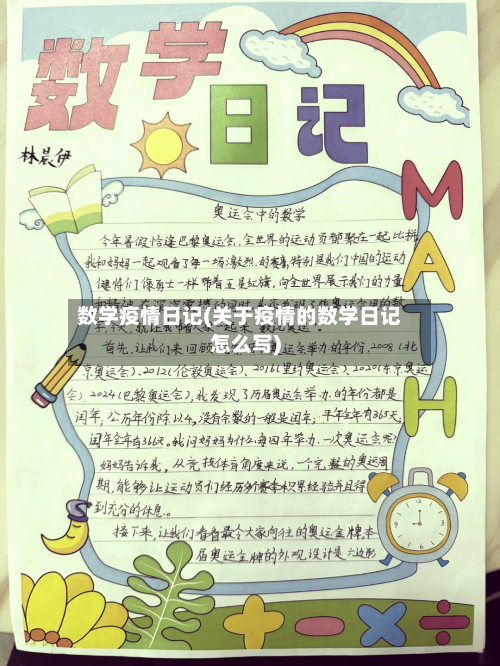 数学
日记
林晨伊
MATH
奥运会中的数学
今年暑假恰逢巴黎奥运会，全世界的运动员都聚在一起比拼，
我和妈妈一起观看了每一场激烈的比赛，特别是我们中国的运动
健将们像勇士一样带着五星红旗，向全世界展示我们的力量
数学疫情日记(关于疫情的数学日记
怎么写)
首先，让我们来回顾 奥运会举办的年份，2008（北
京奥运会），2012（伦敦奥运会），2016（里约奥运会），2020（东京奥运
会），2024（巴黎奥运会），我发现了历届奥运会举办的年份都是
闰年，公历年份除以4，没有余数的一般是闰年；平年全年有365天，
闰年全年有366天。我问妈妈为什么每四年举办一次奥运会呢？
妈妈告诉我，从竞技体育角度来说，一个完整的奥运周
期，能够让运动员们经历 赛事积累经验并且得
到充分的休息。
接下来，让我们看看最令大家向往的奥运金牌，本
届奥运金牌的外观设计是六边形